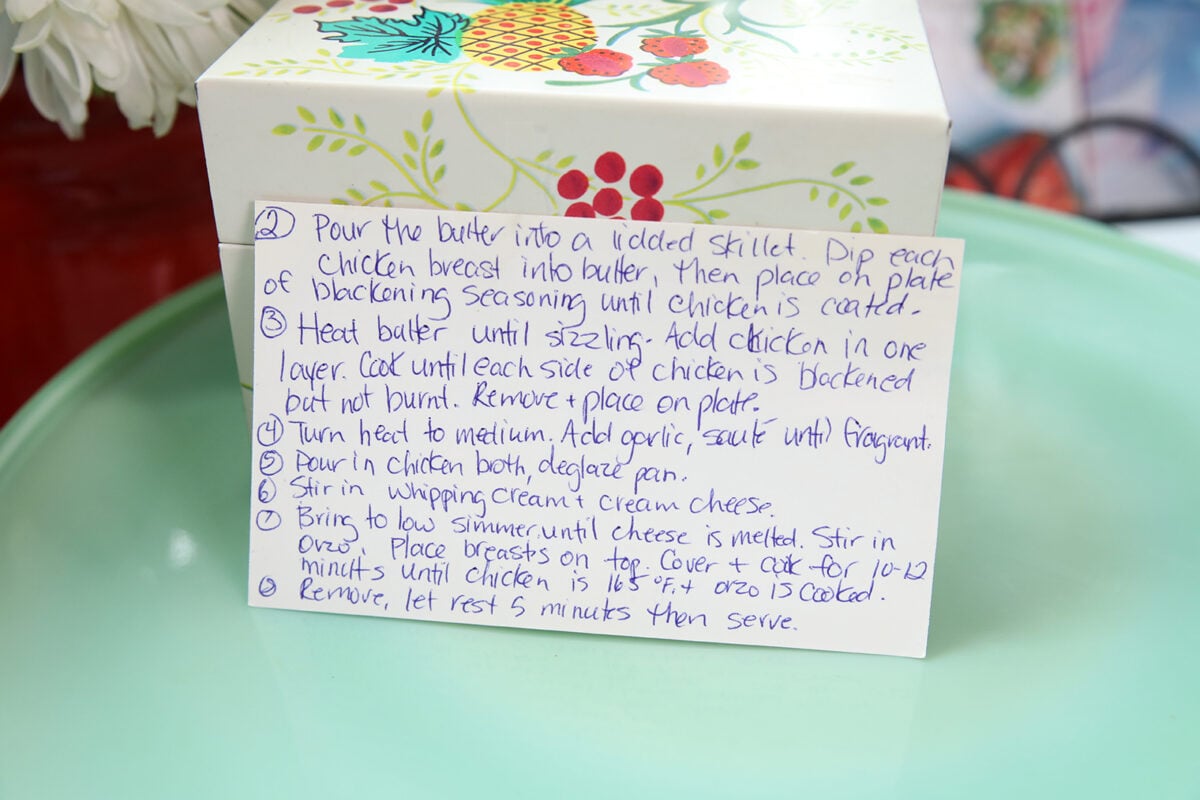 ② Pour the butter into a lidded skillet. Dip each
chicken breast into butter, then place on plate
of blackening seasoning until chicken is coated.
③ Heat butter until sizzling. Add chicken in one
layer. Cook until each side of chicken is blackened
but not burnt. Remove + place on plate.
④ Turn heat to medium. Add garlic, sauté until fragrant.
⑤ Pour in chicken broth, deglaze pan.
⑥ Stir in whipping cream + cream cheese.
⑦ Bring to low simmer until cheese is melted. Stir in
Orzo. Place breasts on top. Cover + cook for 10-12
minutes until chicken is 165 °F. + orzo is cooked.
⑧ Remove, let rest 5 minutes then serve.